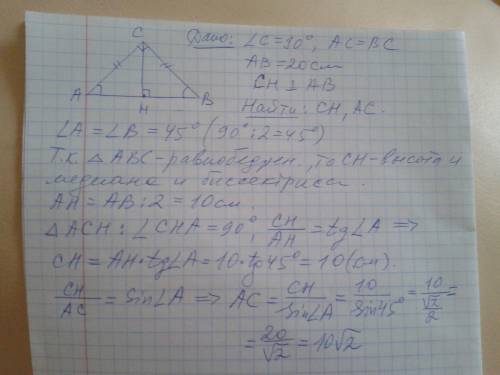 C
A
H
B
Дано: ∠C=90°, AC=BC
AB=20см
CH ⊥ AB
Найти: CH, AC.
∠A = ∠B = 45° (90°:2=45°)
Т.к. △ABC-равнобедрен., то CH-высота и
медиана и биссектриса.
AH = AB:2 = 10см.
△ACH: ∠CHA=90°, CH/AH = tg∠A ⇒
CH = AH·tg∠A = 10·tg45° = 10 (см).
CH/AC = Sin∠A ⇒ AC = CH/Sin∠A = 10/Sin45° = 10/(√2/2) =
= 20/√2 = 10√2